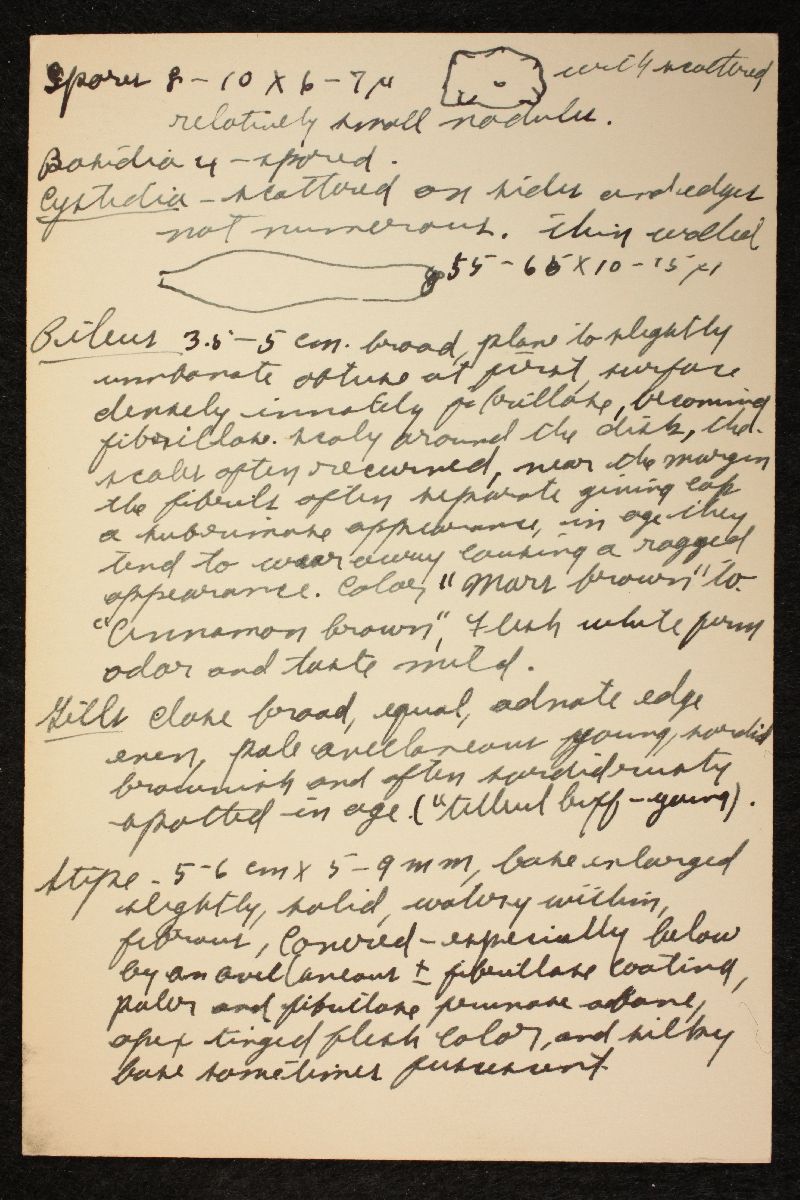 Spores 8-10 X 6-7 µ with scattered
relatively small nodules.
Basidia 4-spored.
Cystidia - scattered on sides and edges
not numerous. thin walled
55-65 X 10-15 µ
Pileus 3.5-5 cm. broad, plane to slightly
umbonate obtuse at first, surface
densely innately fibrillose, becoming
fibrillose. scaly around the disk, the
scales often recurved, near the margin
the fibrils often separate giving cap
a subrimose appearance, in age they
tend to wear away causing a ragged
appearance. Color, "Mars brown" to
"Cinnamon brown", Flesh white firm
odor and taste mild.
Gills close broad, equal, adnate edge
even, pale avellaneous young, sordid
brownish and often sordid rusty
spotted in age. ("tilleul buff - young).
Stipe - 5-6 cm X 5-9 mm, base enlarged
slightly, solid, watery within,
fibrous, Covered - especially below
by an avellaneous ± fibrillose coating,
paler and fibrillose pruinose above,
apex tinged flesh color, and silky
base sometimes